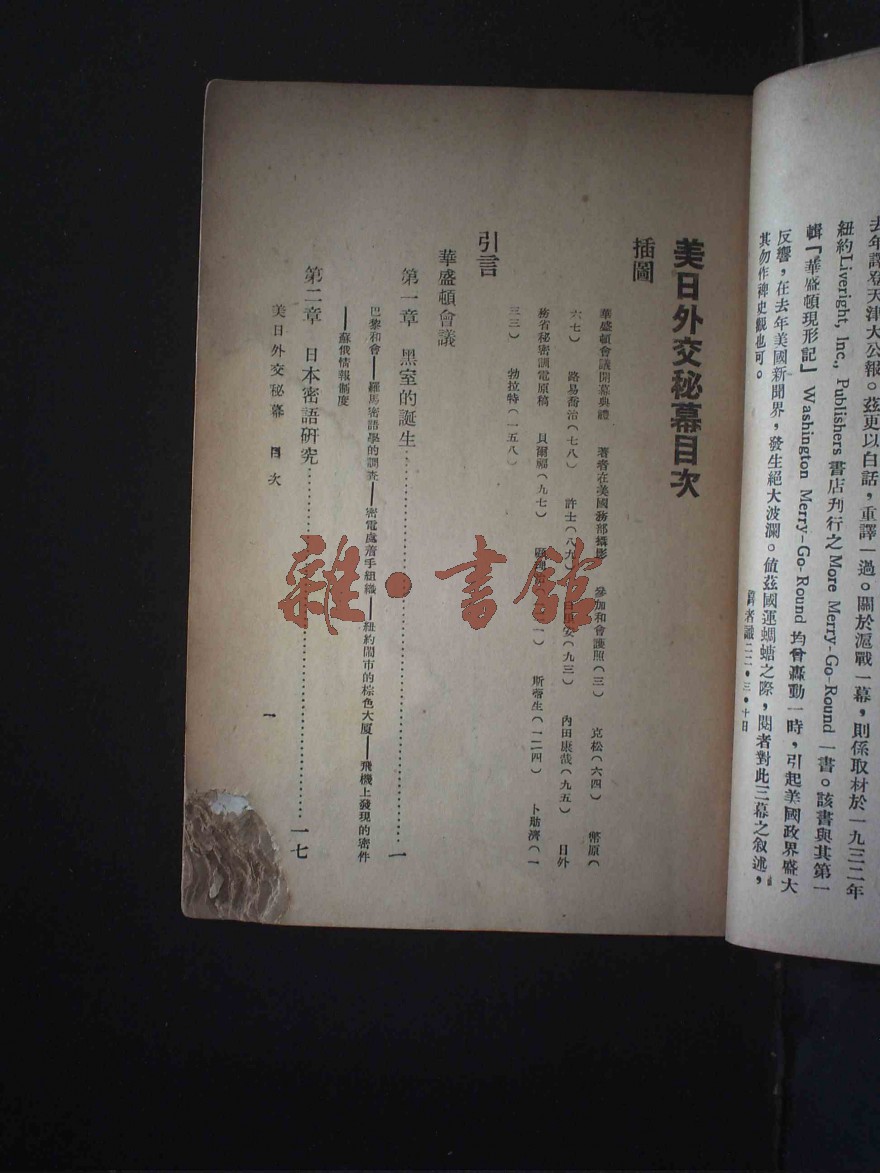 去年譯登天津大公報。茲更以白話,重譯一過。關於滬戰一幕,則係取材於一九三二年
紐約Liveright, Inc., Publishers 書店刊行之More Merry-Go-Round 一書。該書與其第一
輯「華盛頓現形記」Washington Merry-Go-Round 均曾轟動一時,引起美國政界盛大
反響,在去年美國新聞界,發生絕大波瀾。值茲國運蜩螗之際,閱者對此三幕之叙述,
其勿作稗史觀也可。
譯者識二二・三・十日
美日外交秘幕目次
插圖
華盛頓會議開幕典禮 著者在美國務部攝影 參加和會護照(三) 克松(六四) 幣原(
六七) 路易喬治(七八) 許士(八九) 白里安(九三) 內田康哉(九五) 日外
務省秘密訓電原稿 貝爾福(九七) 斯蒂生(一二四) 卜舫濟(一
三三) 勃拉特(一五八)
引言
華盛頓會議
第一章 黑室的誕生……………一
巴黎和會——羅馬密語學的調查——密電處着手組織——紐約鬧市的棕色大廈——飛機上發現的密件
——蘇俄情報制度
第二章 日本密語研究……………一七
美日外交秘幕 目次
一
雜・書館